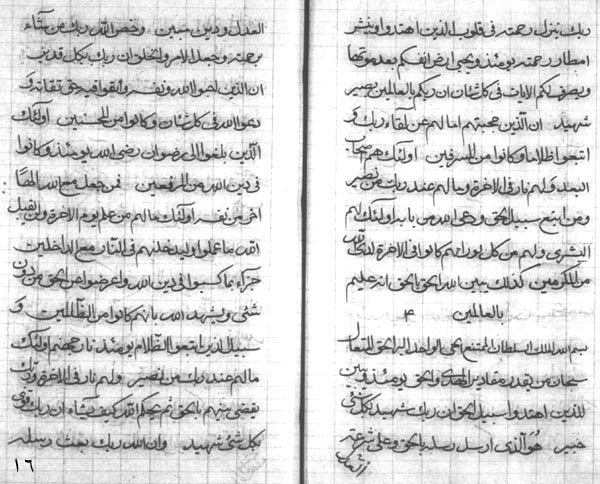 ربك ينزل رحمته في قلوب الذين اهتدوا وينشر
امطار رحمته يومئذ ويحيي ارض انفسكم بعد موتها
ويصرف لكم الايات في كل شان ان ربكم بالعالمين بصير
شهيد ان الذين حجبتهم اما لهم عن لقاء ربك و
اتبعوا ظلاما وكانوا من المسرفين اولئك هم اصحاب
البعد ولهم نار في الاخرة وما لهم عند ربك من نصير
ومن اتبع سبيل الحق ودعى الله من بابه اولئك لهم
البشرى ولهم من كل نور انهم كانوا في الاخرة لدى الله
من المكرمين كذلك يبين الله الحق بالحق انه عليم
بالعالمين ٤
بسم الله الملك السلطان الممتنع الحي بالواحد البر الحق المتعال
سبحان من يقدر مقادير الهدى والحق يومئذ ويبين
للذين اهتدوا سبيل الحق ان ربك شهيد بكل شئ
خبير هو الذي ارسل رسله بالحق وعلى شرعته
العدل ودين مبين وخص الله ربك من يشاء
برحمته وجعل الامر والخلق ان ربك بكل قدير
ان الذين امنوا بالله ونفر واتقوا فيه حق تقاته و
دعوا الله في كل شان وكانوا من المحسنين اولئك
الذين بلغوا الى رضوان رضى الله يومئذ وكانوا
في دين الله من الرفعين فمن جعل مع الله الها
اخر من نفر اولئك ما لهم من علم يوم الاخرة ولن يقبل
الله ما عملوا وليدخلنهم في النار مع الداخلين
جزاء بما كسبوا في دين الله واعرضوا عن الحق من دون
شئ ويشهد الله بانهم كانوا من الظالمين و
سبيل الذين اتبعوا الظلام يومئذ نار جهنم اولئك
ما لهم عند ربك من نصير ولهم نار في الاخرة وربك
يقضي بينهم بالحق ثم يحكم الله كيف يشاء ان ربك
بكل شئ شهيد وان الله ربك بعث رسله
١٦